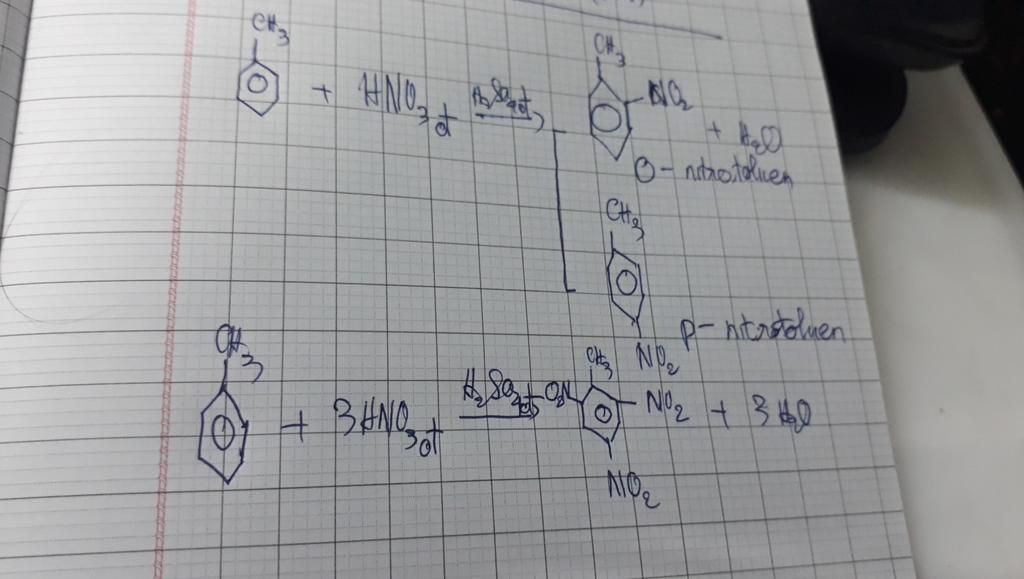 CH3
+ HNO3 đ H2SO4 đ
CH3
NO2
+ H2O
O - nitrotoluen
CH3
NO2
p - nitrotoluen
CH3
+ 3HNO3 đ H2SO4 đ
CH3
O2N
NO2 + 3H2O
NO2